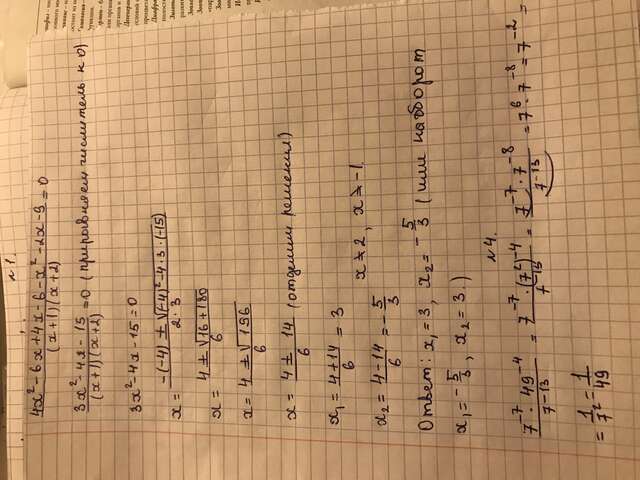 №1.
4x² - 6x + 4x - 6 - x² - 2x - 9 / (x+1)(x+2) = 0
3x² - 4x - 15 / (x+1)(x+2) = 0 (приравняем числитель к 0)
3x² - 4x - 15 = 0
x = -(-4) ± √(-4)² - 4·3·(-15) / 2·3
x = 4 ± √16 + 180 / 6
x = 4 ± √196 / 6
x = 4 ± 14 / 6 (отделим решения)
x₁ = 4+14 / 6 = 3
x ≠ 2, x ≠ -1
x₂ = 4-14 / 6 = - 5/3
Ответ: x₁ = 3, x₂ = - 5/3 (или наоборот
x₁ = - 5/3, x₂ = 3.)
№4.
7⁻⁷ · 49⁻⁴ / 7⁻¹³ = 7⁻⁷ · (7²)⁻⁴ / 7⁻¹³ = 7⁻⁷ · 7⁻⁸ / 7⁻¹³ = 7⁶ · 7⁻⁸ = 7⁻² =
= 1/7² = 1/49